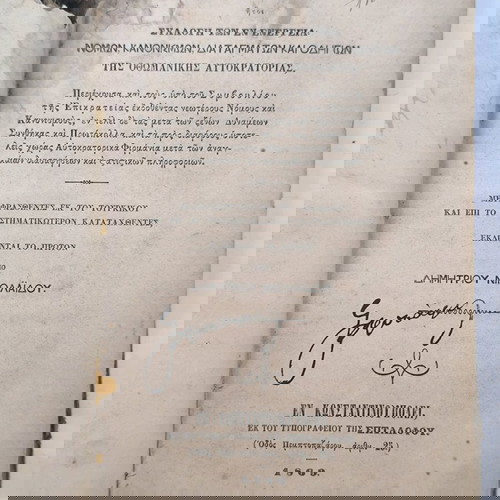 ΣΥΛΛΟΓΗ ΤΩΝ ΕΝ ΕΝΕΡΓΕΙΑ
ΝΟΜΩΝ ΚΑΝΟΝΙΣΜΩΝ ΔΙΑΤΑΓΜΑΤΩΝ ΚΑΙ ΟΔΗΓΙΩΝ
ΤΗΣ ΟΘΩΜΑΝΙΚΗΣ ΑΥΤΟΚΡΑΤΟΡΙΑΣ.
Περιέχουσα καὶ τοὺς ὑπὸ τοῦ Συμβουλίου
τῆς Ἐπικρατείας ἐκδοθέντας νεωτέρους Νόμους καὶ
Κανονισμοὺς, ἐν τέλει δὲ τὰς μετὰ τῶν ξένων Δυνάμεων
Συνθήκας καὶ Πρωτόκολλα καὶ τὰ πρὸς διαφόρους ὑποτε-
λεῖς χώρας Αὐτοκρατορικὰ Φιρμάνια μετὰ τῶν ἀναγ-
καίων διασαφήσεων καὶ στατιστικῶν πληροφοριῶν.
ΜΕ ΦΡΑΣΘΕΝΤΕΣ ΕΚ ΤΟΥ ΤΟΥΡΚΙΚΟΥ
ΚΑΙ ΕΠΙ ΤΟ ΣΤΗΜΑΤΙΚΩΤΕΡΟΝ ΚΑΤΑΤΑΧΘΕΝΤΕΣ
ΕΚΔ ΟΝΤΑΙ ΤΟ ΠΡΩΤΟΝ
ΔΗΜΗΤΡΙΟΥ ΝΙΚΟΛΑΪΔΟΥ.
ΕΝ ΚΩΝΣΤΑΝΤΙΝΟΥΠΟΛΕΙ,
ΕΚ ΤΟΥ ΤΥΠΟΓΡΑΦΕΙΟΥ ΤΗΣ ΕΠΤΑΛΟΦΟΥ.
1869